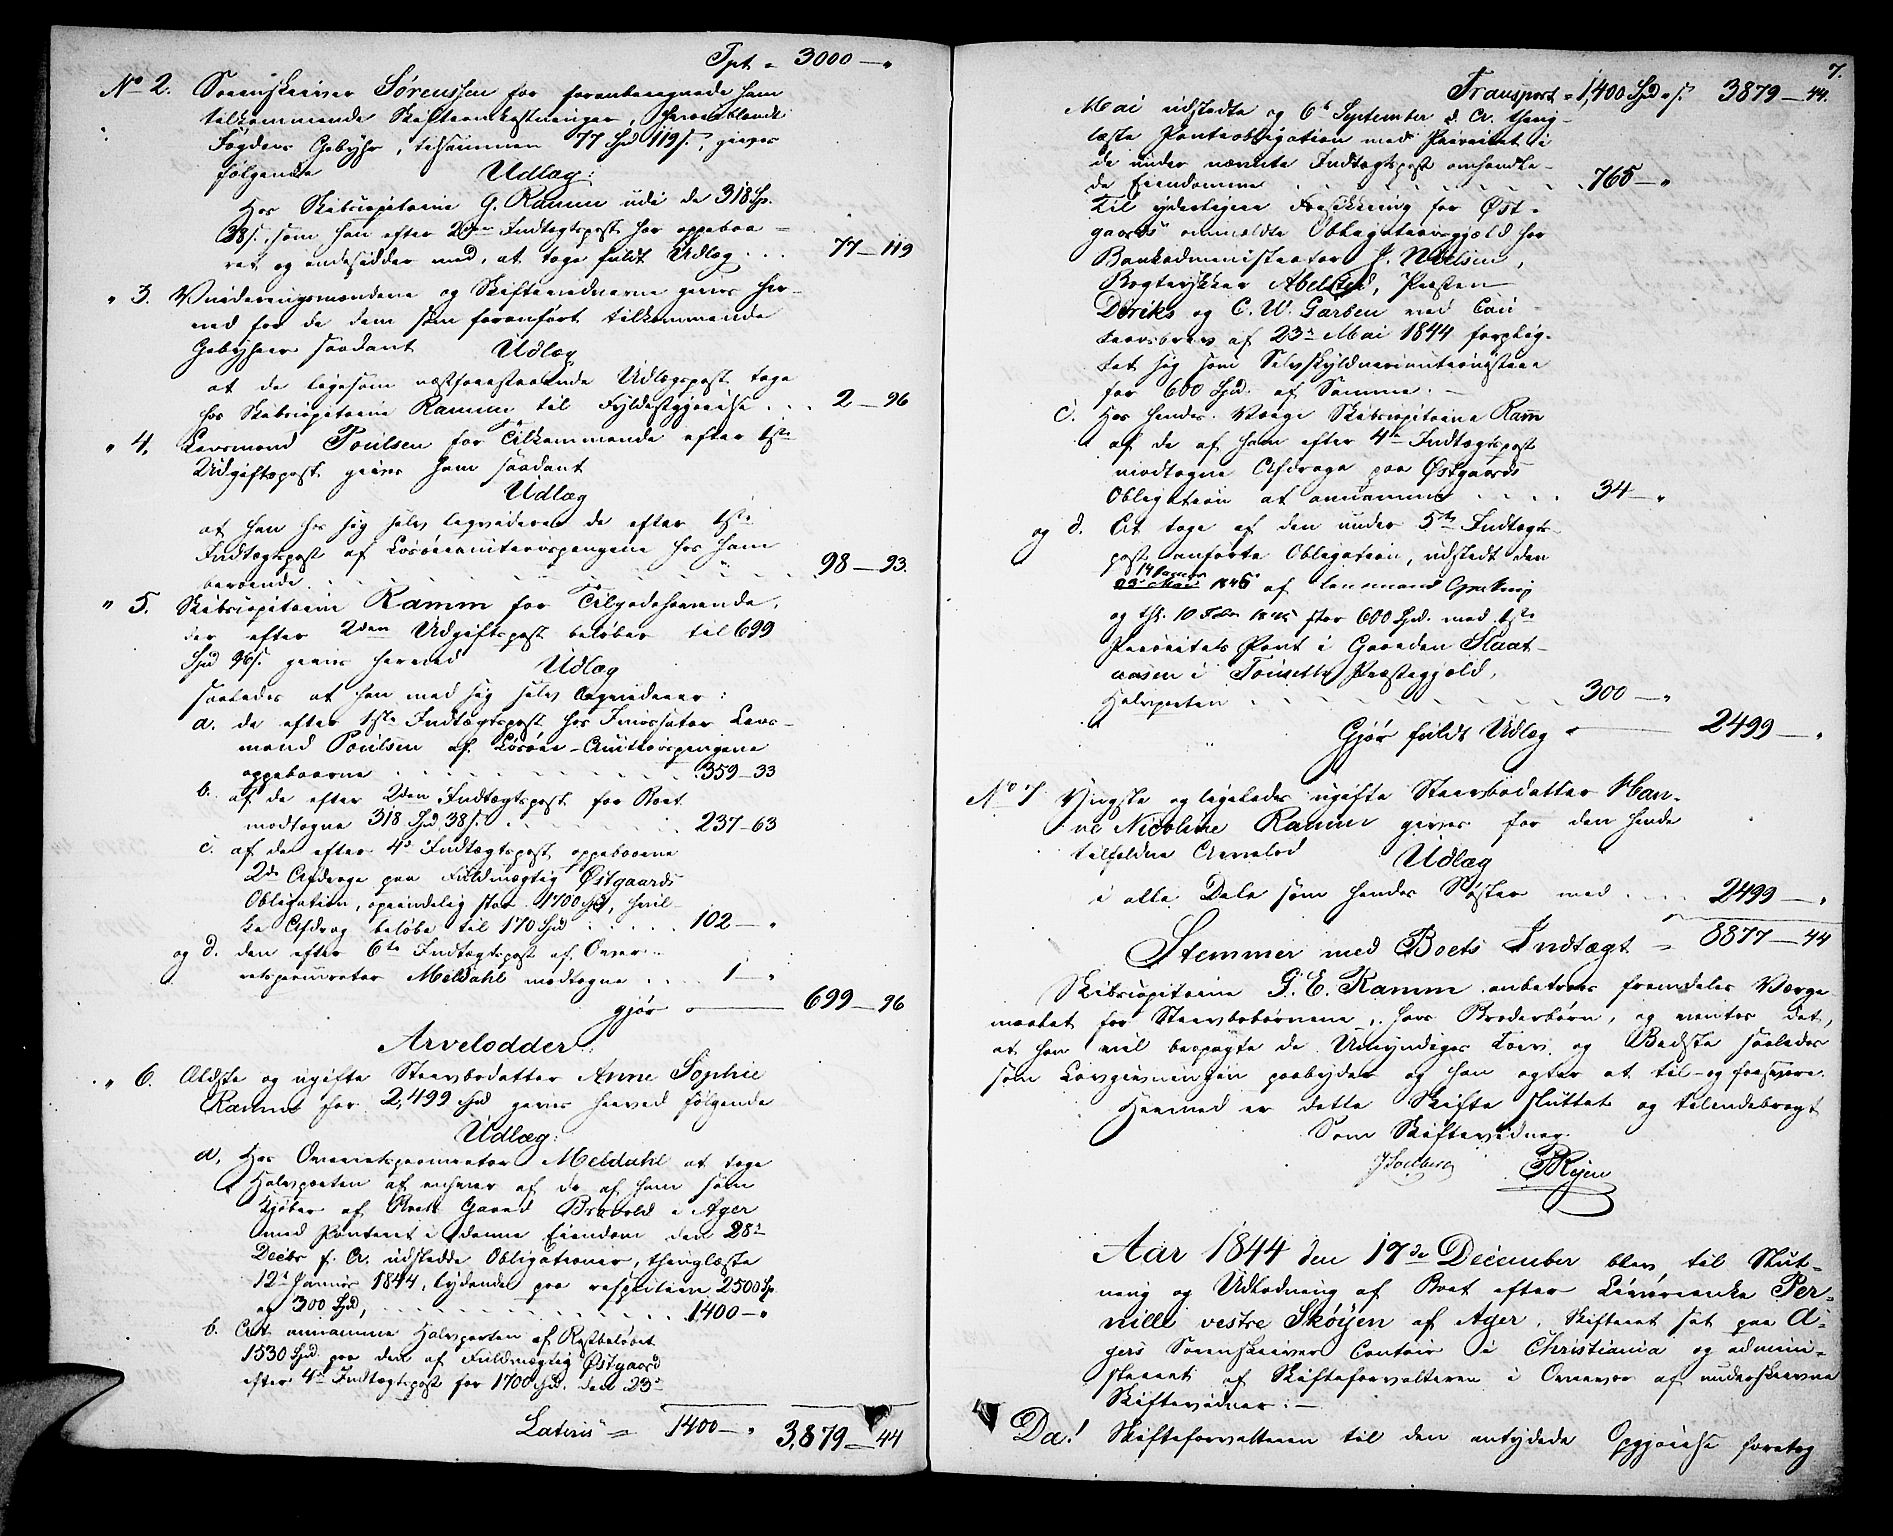 Tpt = 3000 — „
No 2. Sorenskriver Sørenssen for foranberegnede ham
tilkommende Skifteomkostninger, herunder
Fogdens Gebyhr, tilsammen 77 Spd 119 s., gives
følgende Udlæg:
Hos Skibscapitaine G. Ramm udi de 318 Sp.
38 s. som han efter 2den Indtægtspost har oppebaa-
ret og indesidder med, at tage fuldt Udlæg . . . 77 — 119
„ 3. Vurderingsmændene og Skiftevidnerne gives her-
ved for de dem som foranført tilkommende
Gebyhrer saadant Udlæg
at de ligesom næstforestaaende Udlægspost tage
hos Skibscapitaine Ramm til Fyldestgjørelse . . . 2 — 96
„ 4. Lensmand Poulsen for Tilkommende efter 1ste
Udgiftspost gives ham saadant
Udlæg
at han hos sig selv liqviderer de efter 1ste
Indtægtspost af Løsøreauctionspengene hos ham
beroende . . . 98 — 93.
„ 5. Skibscapitaine Ramm for Tilgodehavende,
der efter 2den Udgiftspost beløber til 699
Spd 96 s. gives herved Udlæg
saaledes at han med sig selv liqviderer:
a. de efter 1ste Indtægtspost hos Incassator Lens-
mand Poulsen af Løsøre-Auctionspengene
oppebaarne . . . 359 — 33
b. af de efter 2den Indtægtspost for Boet
modtagne 318 Spd 38 s. . . . 237 — 63
c. af de efter 4de Indtægtspost oppebaarne
2de Afdrage paa Fuldmægtig Østgaards
Obligation, oprindelig stor 1700 Spd, hvil-
ke Afdrag beløbe til 170 Spd . . . 102 — „
og d. den efter 6te Indtægtspost af Over-
retsprocurator Meldahl modtagne . . . 1 — „
gjør — 699 — 96
Arvelodder:
„ 6. Ældste og ugifte Stervbodatter Anne Sophie
Ramm for 2,499 Spd gives herved følgende
Udlæg:
a. Hos Overretsprocurator Meldahl at tage
Halvparten af enhver af de af ham som
Kjøber af Boets Gaard Bravold i Ager
med Panteret i denne Eiendom den 28de
Decbr f. A. udstedde Obligationer, thinglæste
12te Januar 1844, lydende paa respective 2500 Sp
og 300 Spd, . . . 1400 — „
b. At annamme Halvparten af Restbeløbet
1530 Spd. paa den af Fuldmægtig Østgaard
efter 4de Indtægtspost for 1700 Spd. den 23de
Lateris = 1400 — „ 3,879 — 44
7.
Transport = 1,400 Spd „ s. 3879 — 44.
Mai udstedte og 6te September d. A. thing-
læste Panteobligation med Prioritet i
de under nævnte Indtægtspost omhandle-
de Eiendomme . . . 765 — „
til yderligere Forsikkring for Øst-
gaards anmeldte Obligationsgjæld har
Bankadministrator J. Nielsen,
Bogtrykker Abelsted, Præsten
Diriks og C. W. Garben ved Cau-
tionsbrev af 23de Mai 1844 forplig-
tet sig som Selvskyldnercautionister
for 600 Spd. af Summen. —
c. Hos hendes Værge Skibscapitaine Ramm
af de af ham efter 4de Indtægtspost
modtagne Afdrage paa Østgaards
Obligation at annamme . . . 34 — „
og d. At tage af den under 5te Indtægts-
post anførte Obligation, udstedt den
og thl. 10 Febr 1845 stor 600 Spd. med 1ste
Prioritets Pant i Gaarden Slaat-
aasen i Præstegjæld,
Halvparten . . . 300 — „
Gjør fuldt Udlæg — 2499 — „
No 7 Yngste og ligeledes ugifte Stervbodatter Han-
ne Nicoline Ramm gives for den hende
tilfaldne Arvelod Udlæg
i alle Dele som hendes Søster med . . . 2499 — „
Stemmer med Boets Indtægt = 8877 — 44
Skibscapitaine G. E. Ramm anbetroes fremdeles Værge-
maalet for Stervbobørnene, hans Broderbørn, og ventes det,
at han vil besørge de Umyndiges Tarv og Bedste saaledes
som Lovgivningen paabyder og han agter at til- og forsvare.
Hermed er dette Skifte sluttet og tilendebragt
Som Skiftevidner.
Aar 1844 den 17de December blev til Slut-
ning og Udlodning af Boet efter Huusenke Per-
nille vestre Skøyen af Ager, Skifteret sat paa A-
gers Sorenskriver Contoir i Christiania og admini-
streret af Skifteforvalteren i Overvær af underskrevne
Skiftevidner: —
Da! Skifteforvalteren til den antydede Opgjørelse foretog